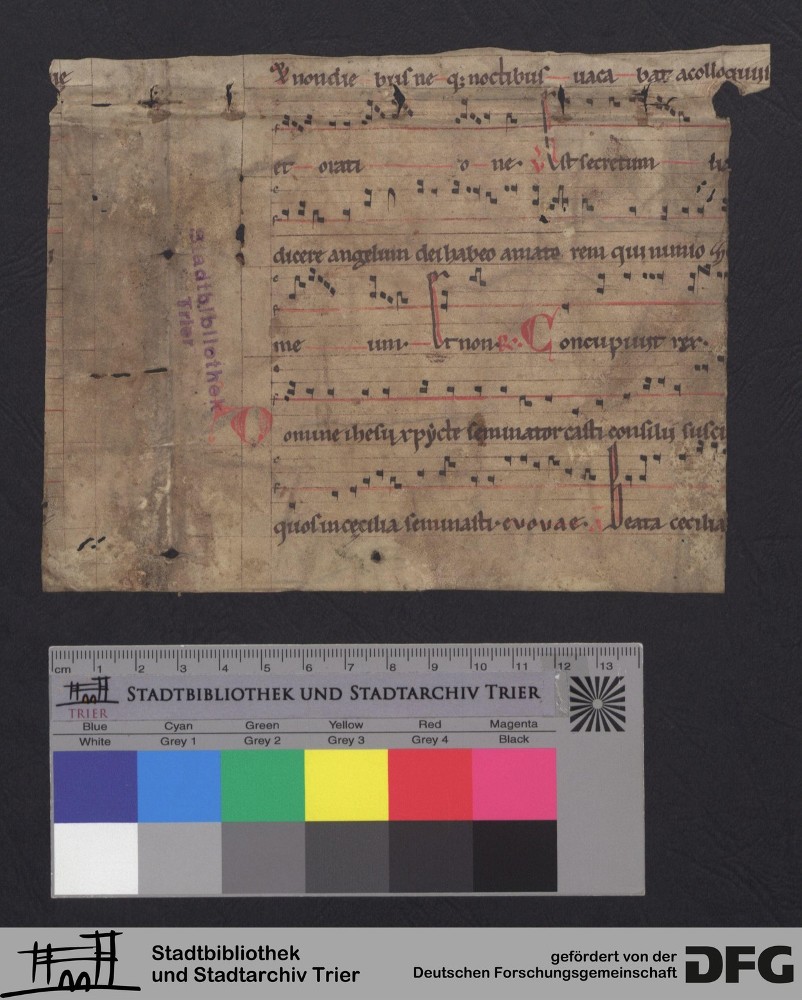 et non die bus ne q; noctibus uaca bat a colloquiis
et orati o ne. Est secretum
dicere angelum dei habeo amato rem qui nimio
me um. Et non R. Concupiuit rex.
Domine ihesu xpycte seminator casti consilij susci
quos in cęcilia seminasti. evovae. Beata cecilia
Stadtbibliothek
Trier
cm 1 2 3 4 5 6 7 8 9 10 11 12 13
TRIER
STADTBIBLIOTHEK UND STADTARCHIV TRIER
Blue Cyan Green Yellow Red Magenta
White Grey 1 Grey 2 Grey 3 Grey 4 Black
Stadtbibliothek
und Stadtarchiv Trier
gefördert von der
Deutschen Forschungsgemeinschaft
DFG